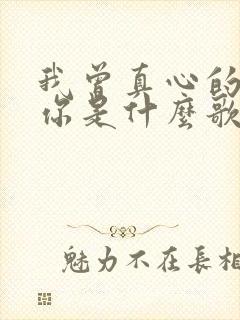 我曾真心的
你是什麼歌
魅力不在長相